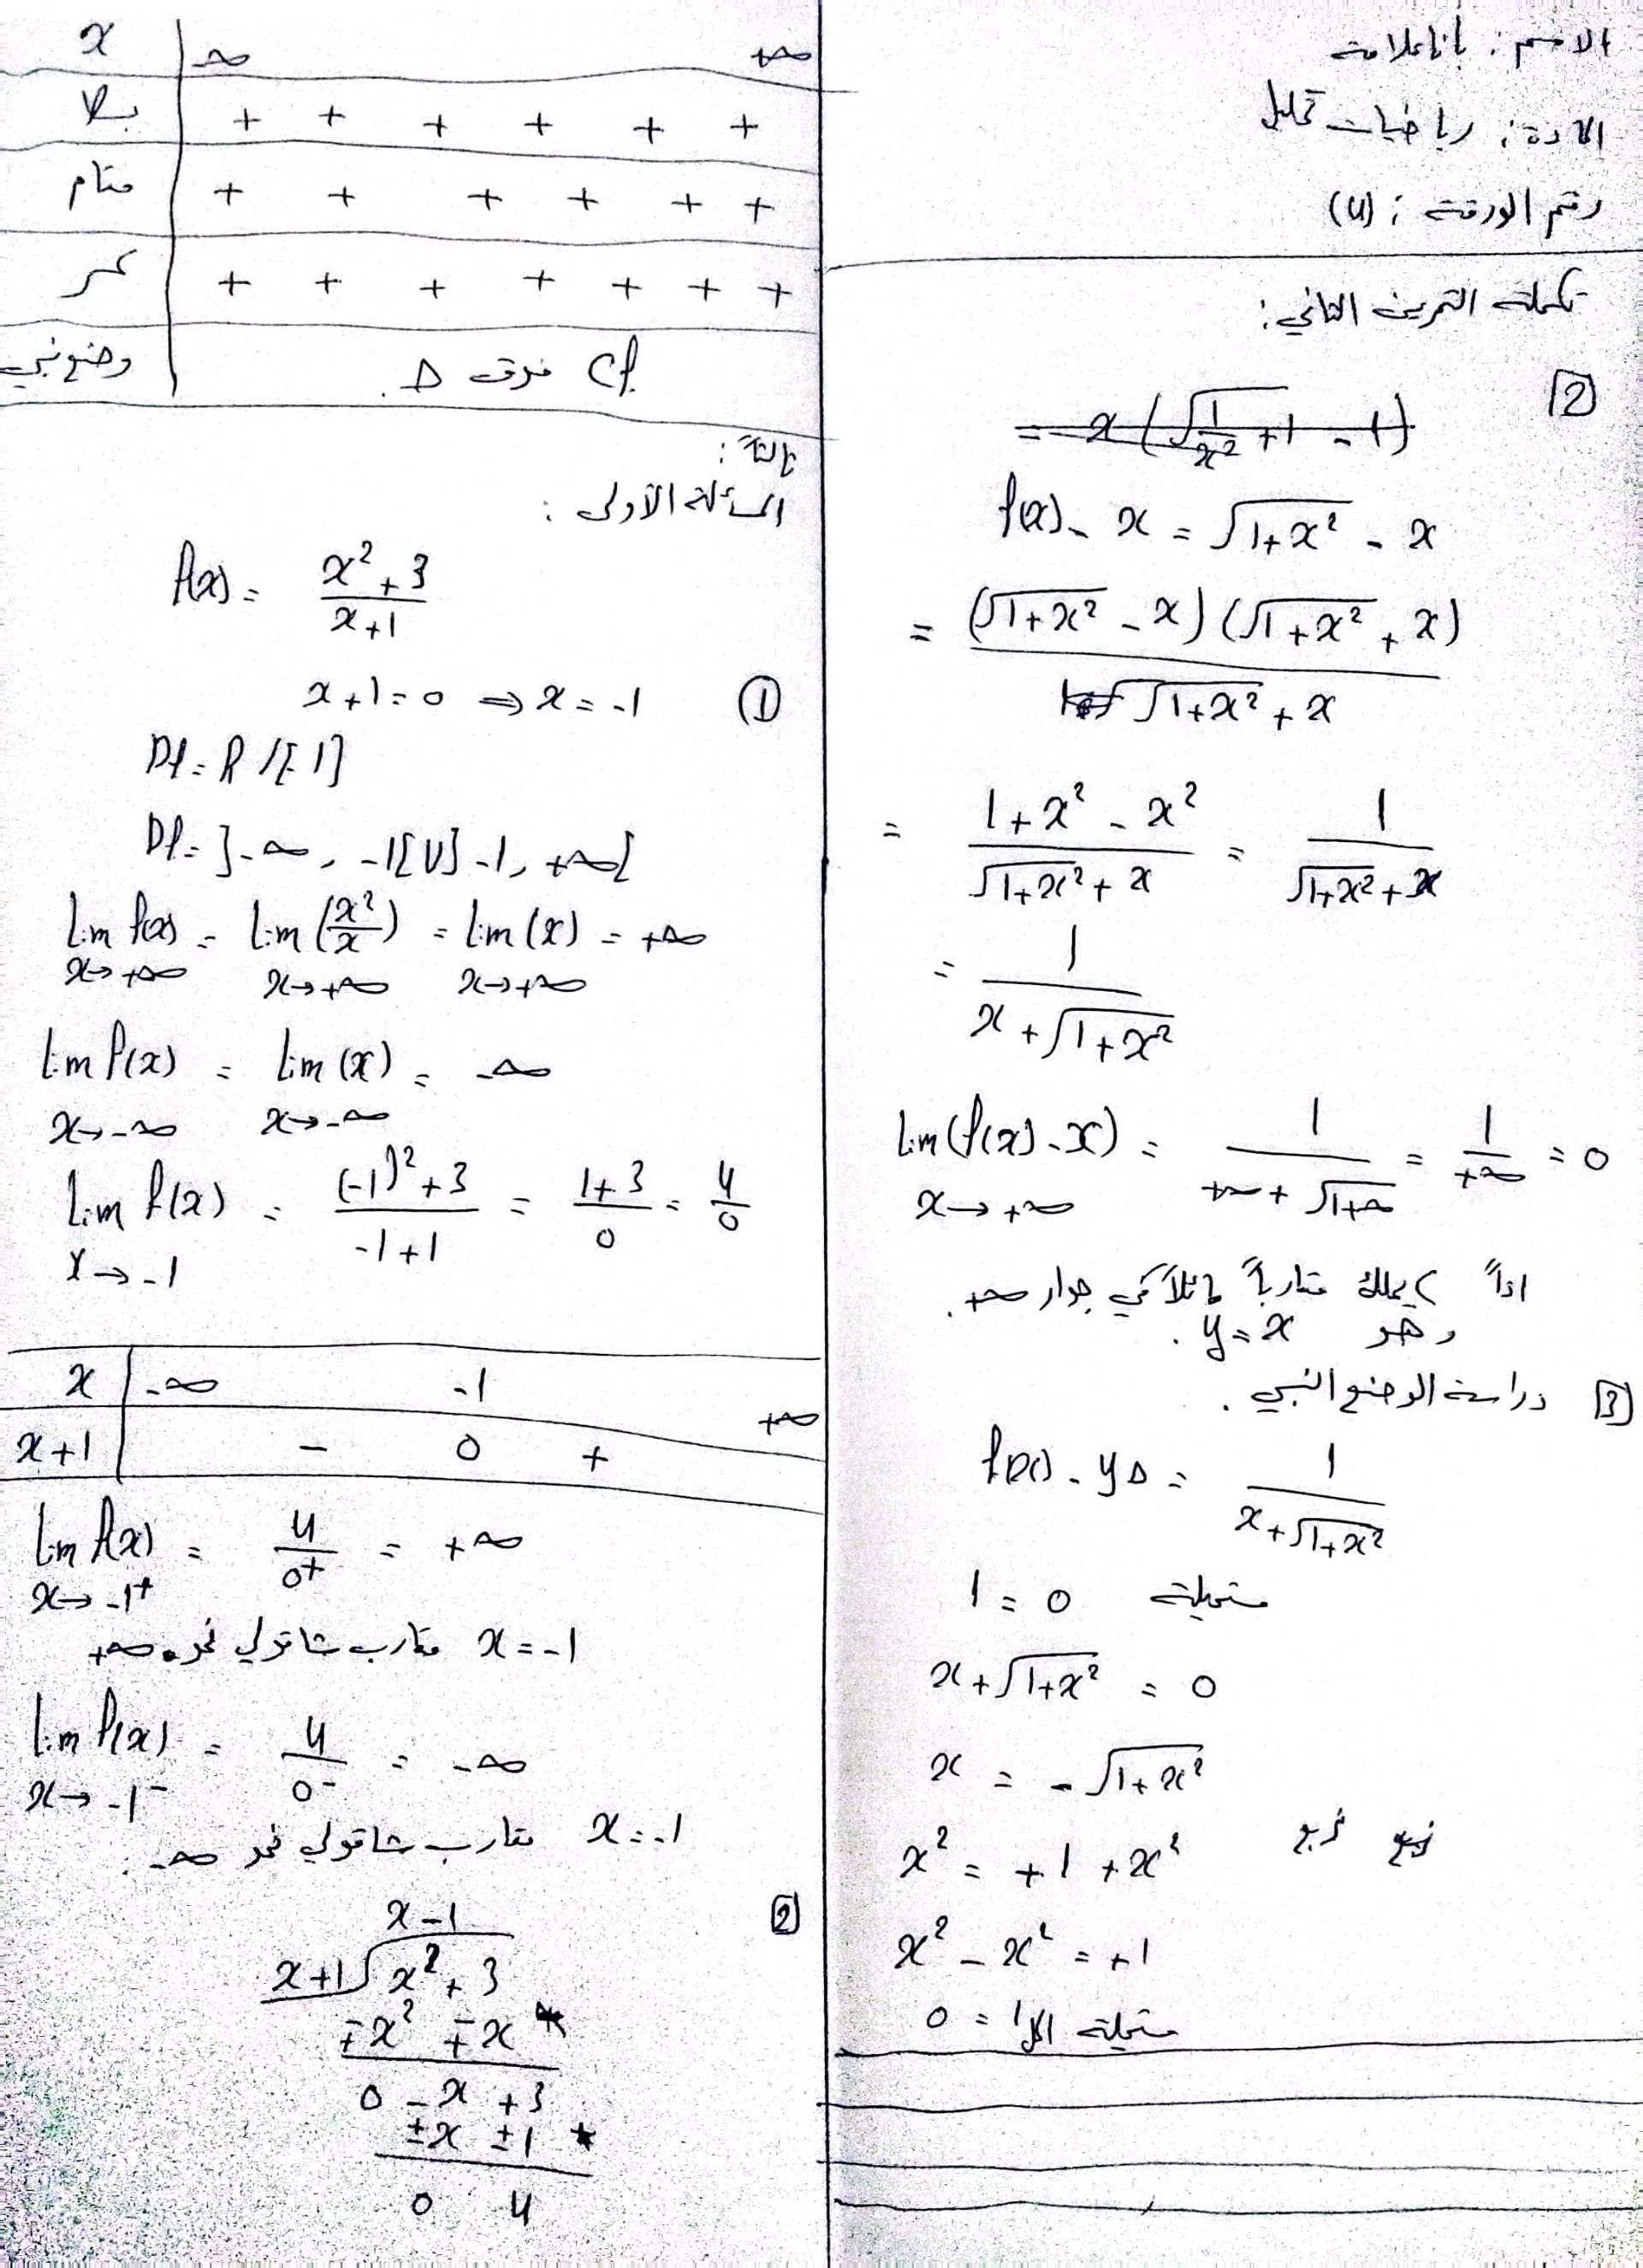 الاسم : بانا علامة
المادة : رياضيات تحليل
رقم الورقة : (4)
تكملة التمرين الثاني :
2
= x (√(1/x² + 1) - 1)
f(x) - x = √(1+x²) - x
= (√(1+x²) - x) (√(1+x²) + x) / √(1+x²) + x
= 1+x² - x² / √(1+x²) + x = 1 / √(1+x²) + x
= 1 / x + √(1+x²)
lim (f(x) - x) = 1 / +∞ + √(1+∞) = 1 / +∞ = 0
x → +∞
اذاً c يملك مقارباً مائلاً في جوار +∞ .
وهو y = x .
3 دراسة الوضع النسبي .
f(x) - yΔ = 1 / x + √(1+x²)
1 = 0 مستحيلة
x + √(1+x²) = 0
x = - √(1+x²)
نربع
x² = +1 + x²
x² - x² = +1
0 = 1 مستحيلة الحل
x -∞ +∞
بسط + + + + + +
مقام + + + + + +
كسر + + + + + + +
وضع نسبي Cf فوق Δ .
ثالثاً :
المسألة الأولى :
f(x) = x² + 3 / x + 1
① x + 1 = 0 ⇒ x = -1
Df = R /{-1}
Df = ]-∞, -1[ U ]-1, +∞[
lim f(x) = lim (x²/x) = lim (x) = +∞
x→+∞ x→+∞ x→+∞
lim f(x) = lim (x) = -∞
x→-∞ x→-∞
lim f(x) = (-1)² + 3 / -1 + 1 = 1+3 / 0 = 4/0
x→-1
x -∞ -1 +∞
x+1 - 0 +
lim f(x) = 4 / 0+ = +∞
x→-1+
x = -1 مقارب شاقولي نحو +∞
lim f(x) = 4 / 0- = -∞
x→-1-
x = -1 مقارب شاقولي نحو -∞ .
2
x - 1
x+1 √ x² + 3
∓x² ∓x *
0 - x + 3
±x ±1 *
0 4